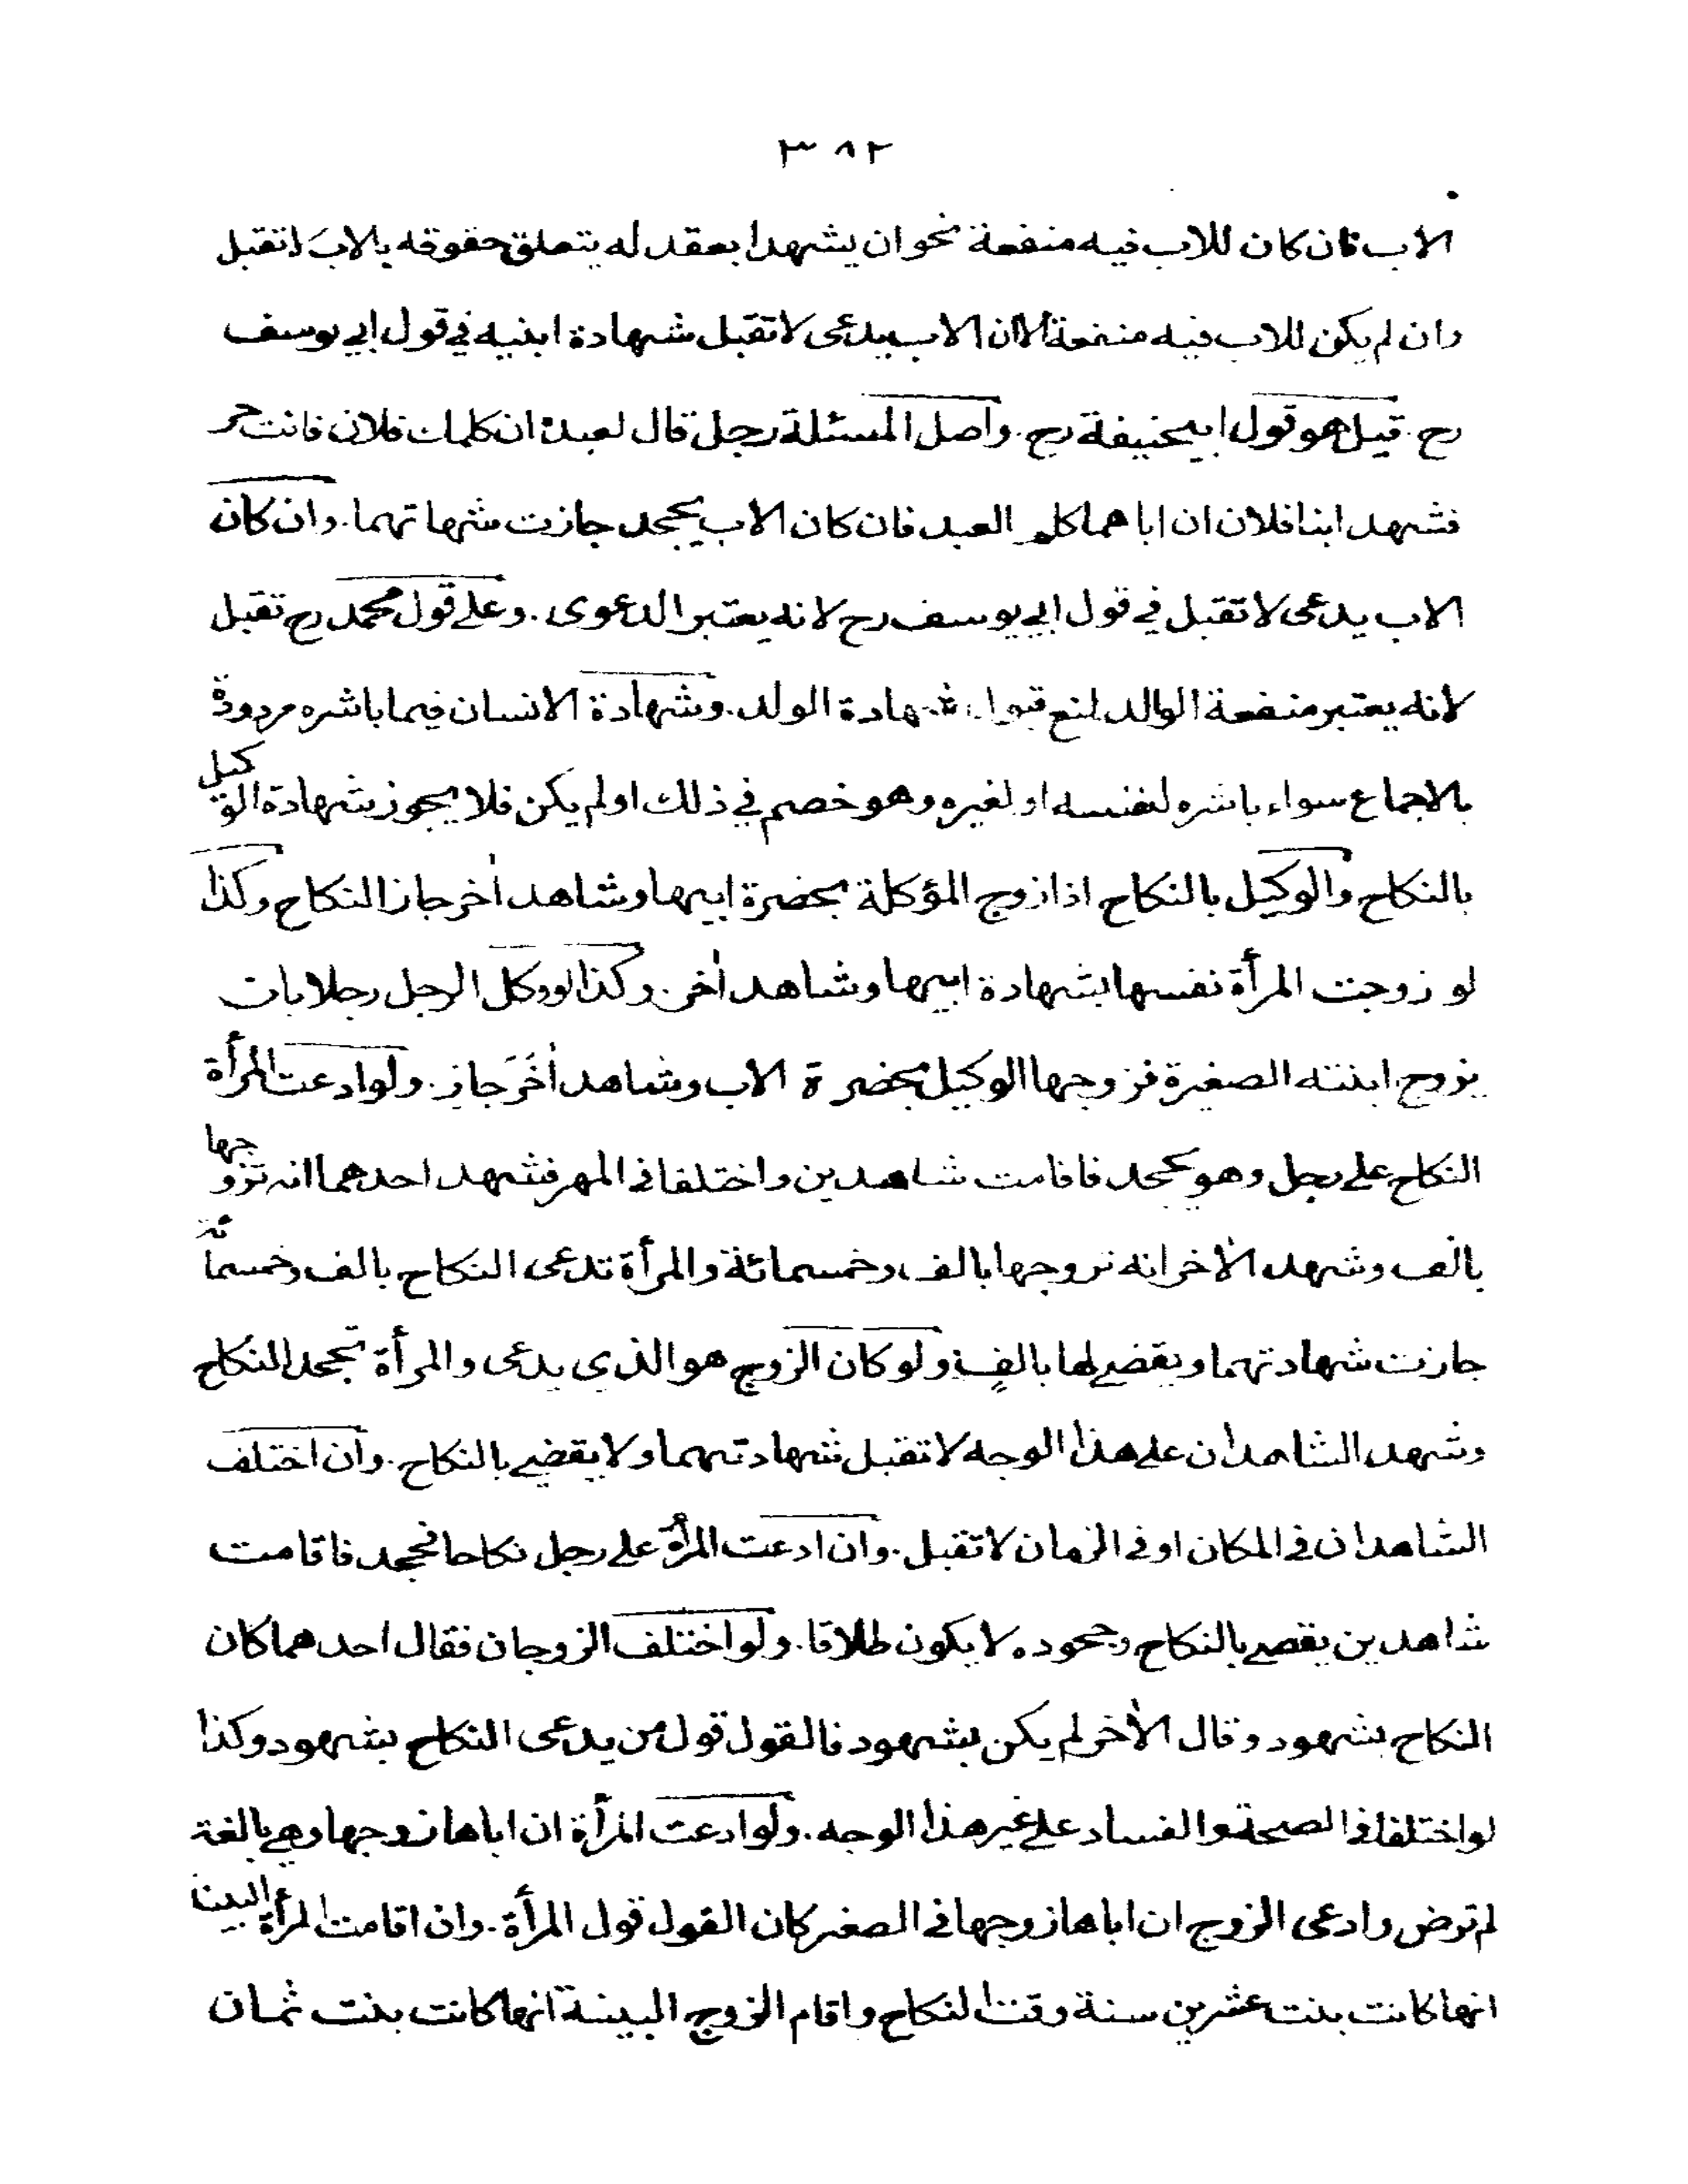 ٣٨٢
الاب فان كان للاب فيه منفعة نحو ان يشهدا بعقد له يتعلق حقوقه بالاب لا تقبل
وان لم يكن للاب فيه منفعة الا ان الاب يدعى لا تقبل شهادة ابنيه في قول ابي يوسف
رح. قيل هو قول ابيحنيفة رح. واصل المسئلة رجل قال لعبده ان كلمك فلان فانت حر
فشهد ابنا فلان ان اباهما كلم العبد فان كان الاب يجحد جازت شهاتهما. وان كان
الاب يدعى لا تقبل في قول ابي يوسف رح لانه يعتبر الدعوى. وعلى قول محمد رح تقبل
لانه يعتبر منفعة الوالد لمنع قبول شهادة الولد. وشهادة الانسان فيما باشره مردودة
بالاجماع سواء باشره لنفسه او لغيره وهو خصم في ذلك او لم يكن فلا يجوز شهادة الوكيل
بالنكاح والوكيل بالنكاح اذا زوج المؤكلة بحضرة ابيها وشاهد اٰخر جاز النكاح وكذا
لو زوجت المرأة نفسها بشهادة ابيها وشاهد اٰخر. وكذا لو وكل الرجل رجلا بان
يزوج ابنته الصغيرة فزوجها الوكيل بحضرة الاب وشاهد اٰخَرَ جاز. ولو ادعت المرأة
النكاح على رجل وهو يجحد فاقامت شاهدين واختلفا فى المهر فشهد احدهما انه تزوجها
بالف وشهد الاٰخر انه تزوجها بالف وخمسمائة والمرأة تدعى النكاح بالف وخمسمائة
جازت شهادتهما ويقضى لها بالفٍ ولو كان الزوج هو الذي يدعى والمرأة تجحد النكاح
وشهد الشاهدان على هذا الوجه لا تقبل شهادتهما ولا يقضى بالنكاح. وان اختلف
الشاهدان فى المكان او فى الزمان لا تقبل. وان ادعت المرأة على رجل نكاحا فجحد فاقامت
شاهدين يقضى بالنكاح وجحوده لا يكون طلاقا. ولو اختلف الزوجان فقال احدهما كان
النكاح بشهود وقال الاٰخر لم يكن بشهود فالقول قول من يدعى النكاح بشهود وكذا
لو اختلفا فى الصحة والفساد على غير هذا الوجه. ولو ادعت المرأة ان اباها زوجها وهى بالغة
لم ترض وادعى الزوج ان اباها زوجها فى الصغر كان القول قول المرأة. وان اقامت المرأة البينة
انها كانت بنت عشرين سنة وقت النكاح واقام الزوج البينة انها كانت بنت ثمان